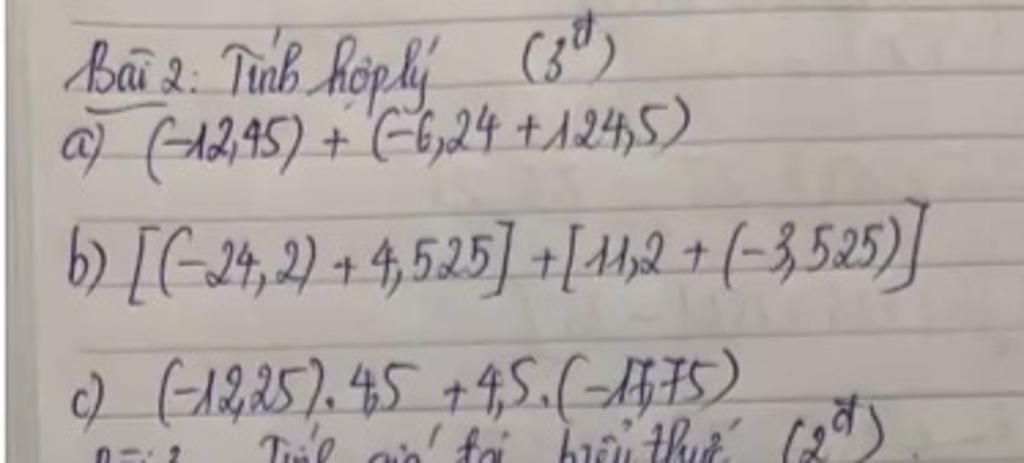 Bài 2: Tính hợp lý (3đ)
a) (-12,45) + (-6,24 + 124,5)
b) [(-24,2) + 4,525] + [11,2 + (-3,525)]
c) (-12,25). 4,5 + 4,5.(-17,75)
Tính giá trị biểu thức (2đ)